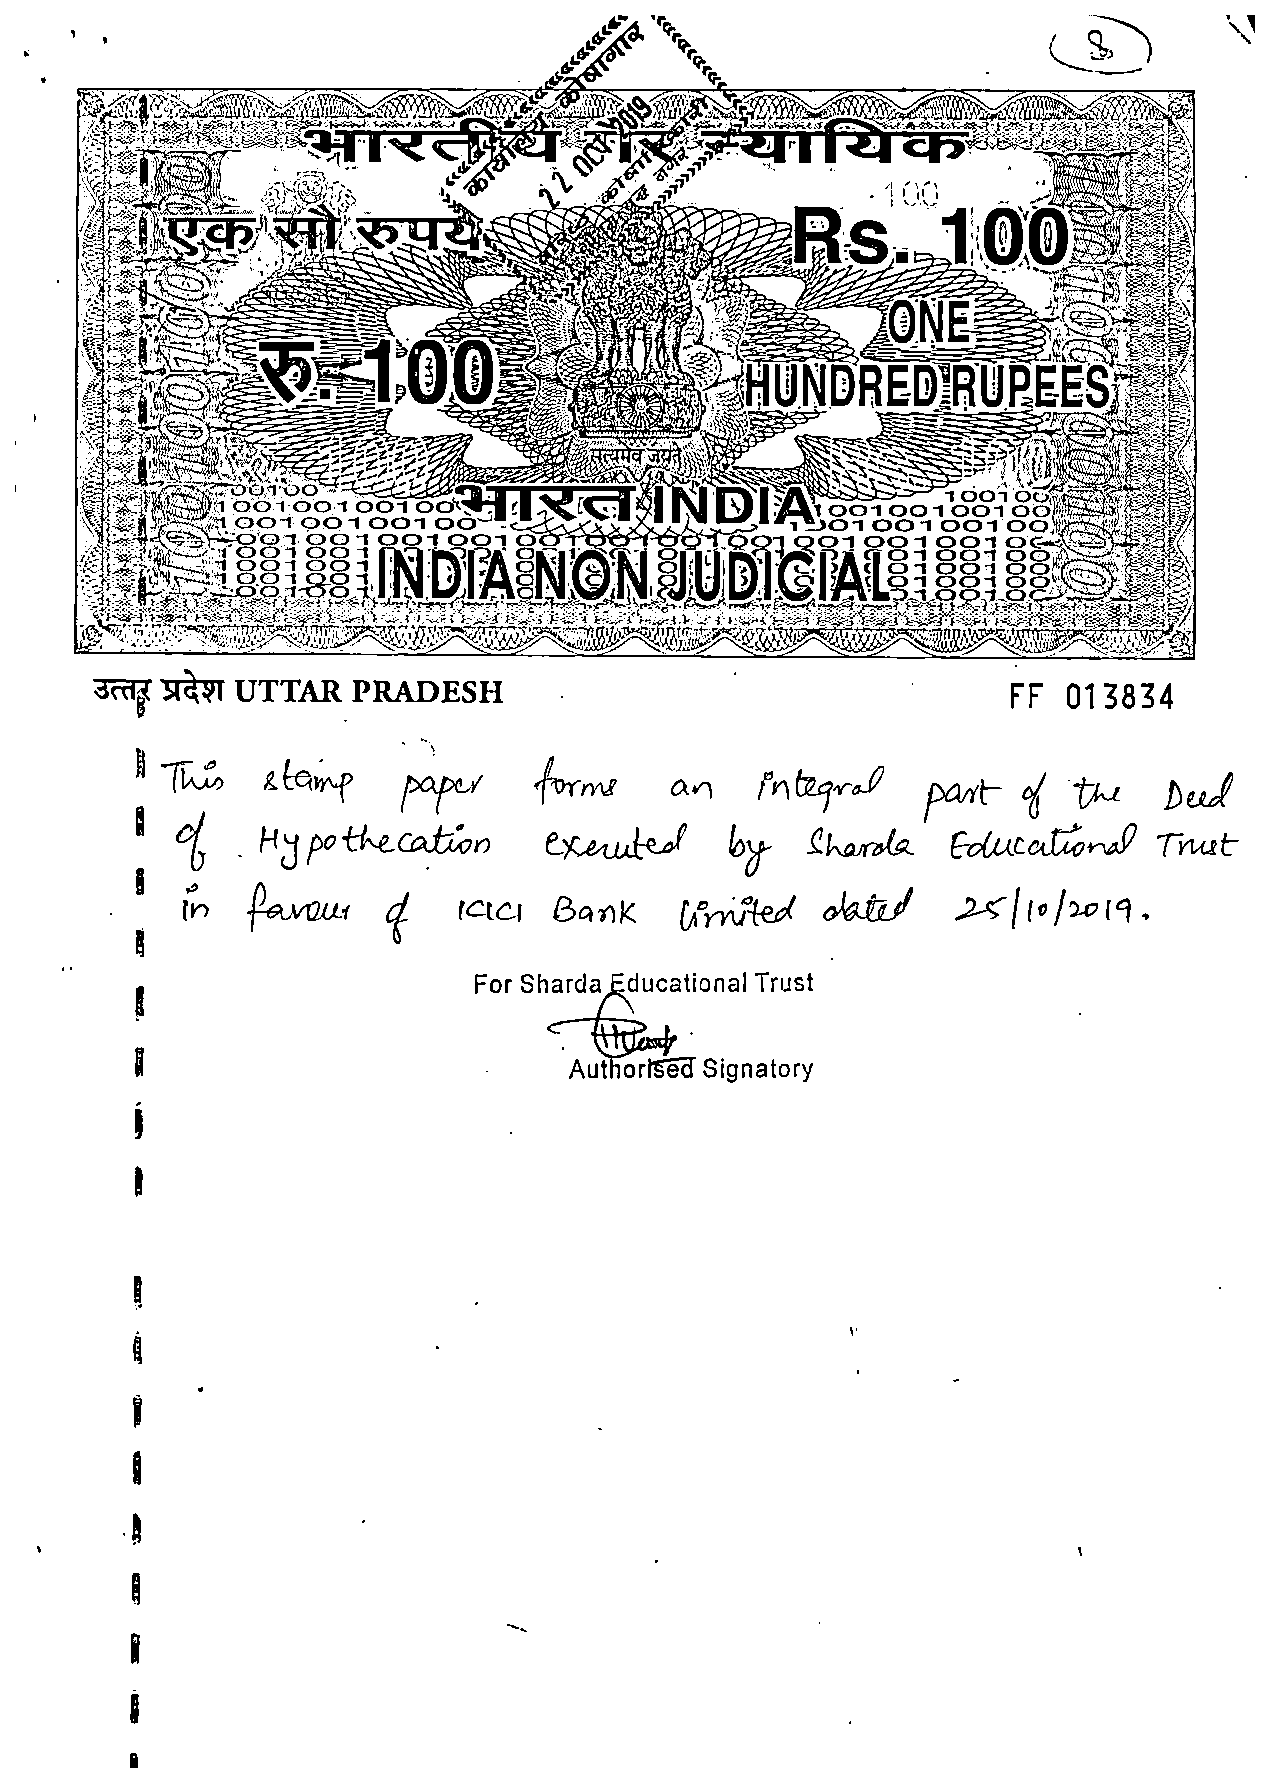 8
कार्यालय कोषागार
22 OCT 2019
भारतीय गैर न्यायिक
100
एक सौ रुपये
Rs. 100
ONE
रु. 100
HUNDRED RUPEES
सत्यमेव जयते
भारत INDIA
INDIA NON JUDICIAL
उत्तर प्रदेश UTTAR PRADESH
FF 013834
This stamp paper forms an integral part of the Deed
of Hypothecation executed by Sharda Educational Trust
in favour of ICICI Bank Limited dated 25/10/2019.
For Sharda Educational Trust
Authorised Signatory